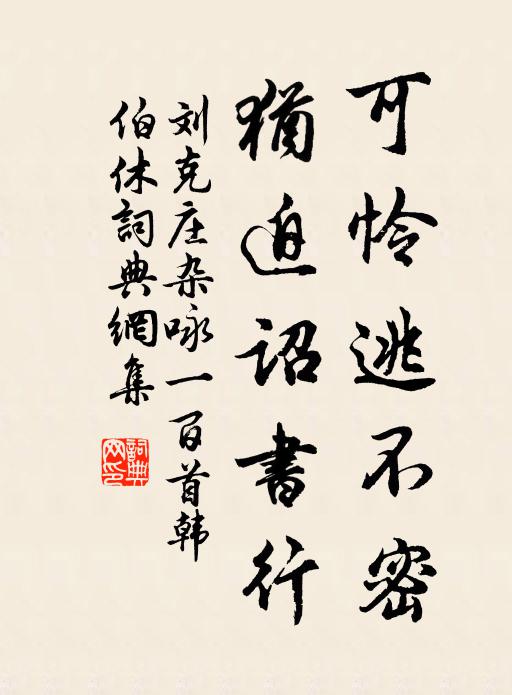 可怜逃不密
猶迫詔書行
刘克庄杂咏一百首韩
伯休詞典網集
詞典
网印